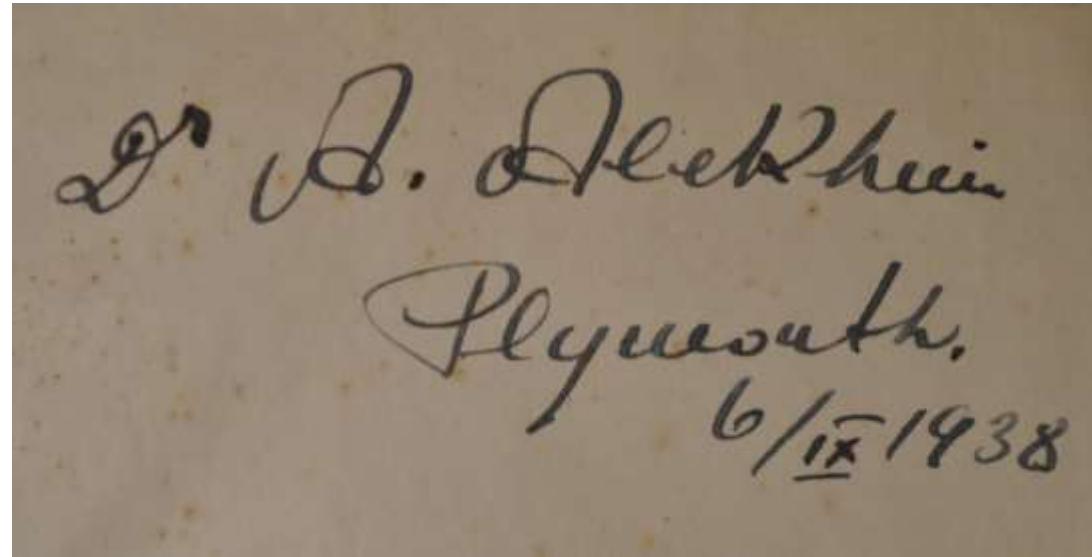 Dr A. Alekhin
Plymouth.
6/IX 1938